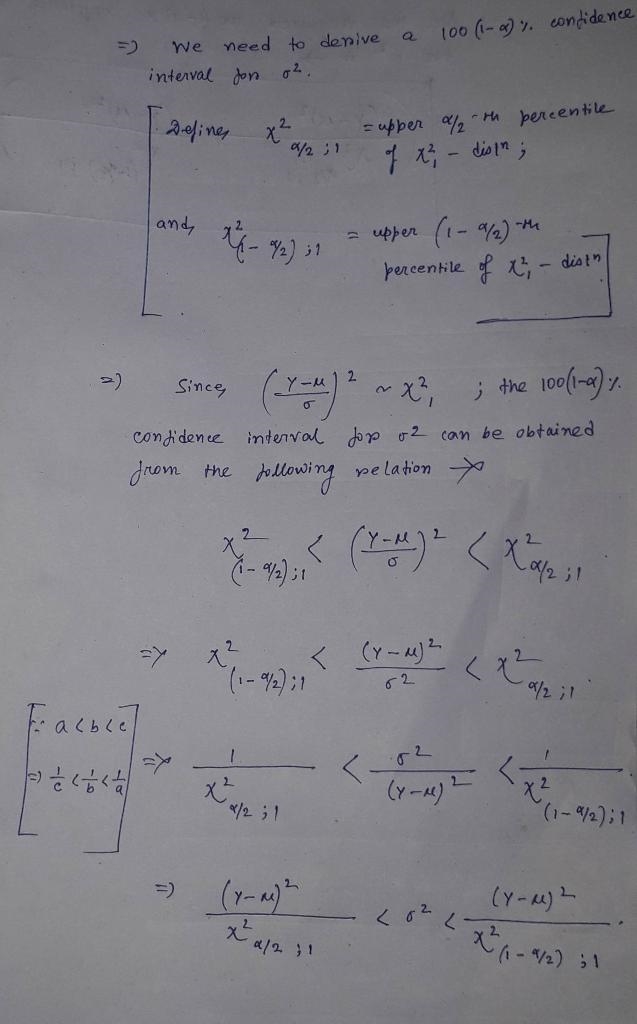 => We need to derive a 100(1-α)%. confidence
interval for σ².
Define, χ²_{α/2;1} = upper α/2-th percentile
of χ²₁-distn;
and, χ²_{(1-α/2);1} = upper (1-α/2)-th
percentile of χ²₁-distn
=> Since, ((Y-μ)/σ)² ~ χ²₁ ; the 100(1-α)%.
confidence interval for σ2 can be obtained
from the following relation →
χ²_{(1-α/2);1} < ((Y-μ)/σ)² < χ²_{α/2;1}.
=> χ²_{(1-α/2);1} < (Y-μ)²/σ2 < χ²_{α/2;1}.
∵ a<b<c
=> 1/c < 1/b < 1/a
=> 1/χ²_{α/2;1} < σ2/(Y-μ)² < 1/χ²_{(1-α/2);1}
=> (Y-μ)²/χ²_{α/2;1} < σ2 < (Y-μ)²/χ²_{(1-α/2);1}.